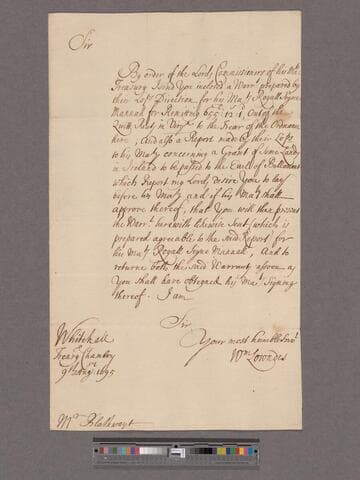 Sir
By order of the Lords Commissioners of his Mats
Treasury I send You inclosed a Warrt prepared by
their Lops Direction for his Mats Royall Signe
Manuall for Remitting 655: 12: 1, Out of the
Quitt Rents in Virga to the Trear of the Ordnance
here, And also a Report made by their Lops
to his Maty concerning a Grant of some Lands
in Ireland to be passed to the Earle of
which Report my Lords desire You to lay
before his Maty and if his Maty shall
approve thereof, that You will then present
the Warrt herewith likewise Sent (which is
prepared agreeable to the said Report) for
his Mats Royall Signe Manuall, And to
returne both the said Warrants assoon as
You shall have obteyned his Mats Signing
thereof. I am
Sir
Your most humble Servt
Wm Lowndes
Whitehall
Treary Chambrs
9th Augt 1695
Mr Blathwayt